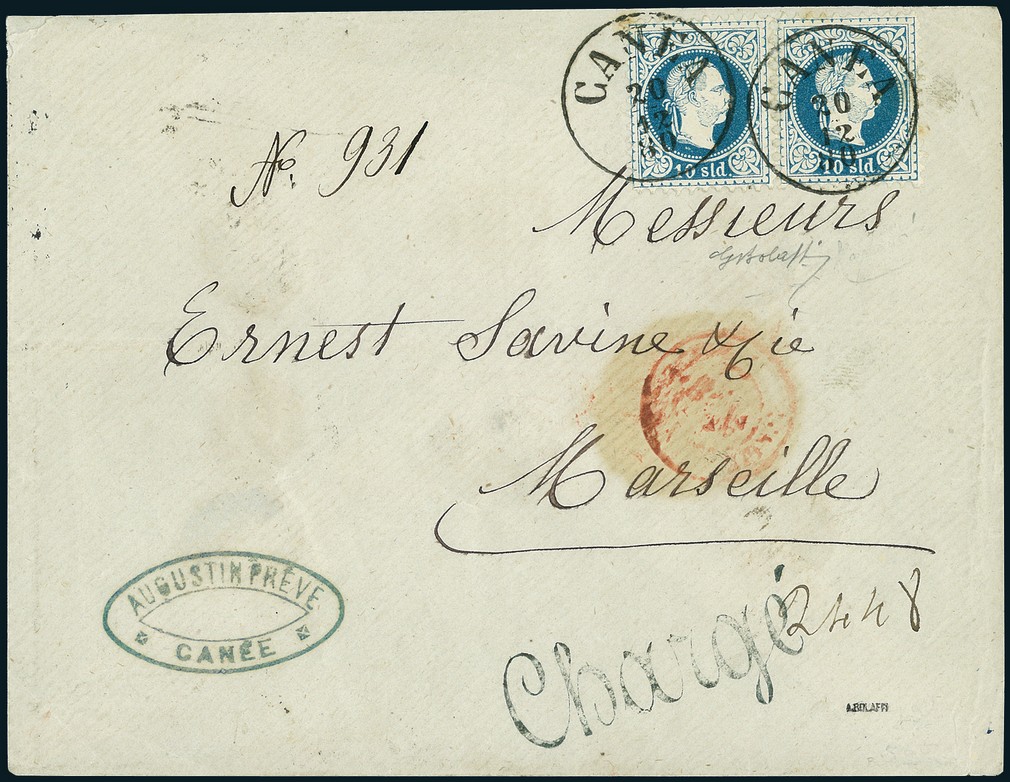 CANEA
20
12
80
CANEA
20
12
80
10 sld.
10 sld.
No. 931
Messieurs
Ernest Savine & Cie
Marseille
AUGUSTIN PRÊVE
CANÉE
Chargé
2448
A.BOLAFFI